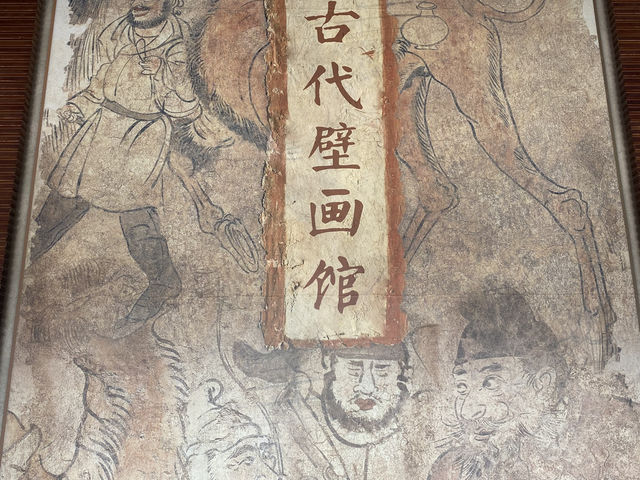 古代壁画馆